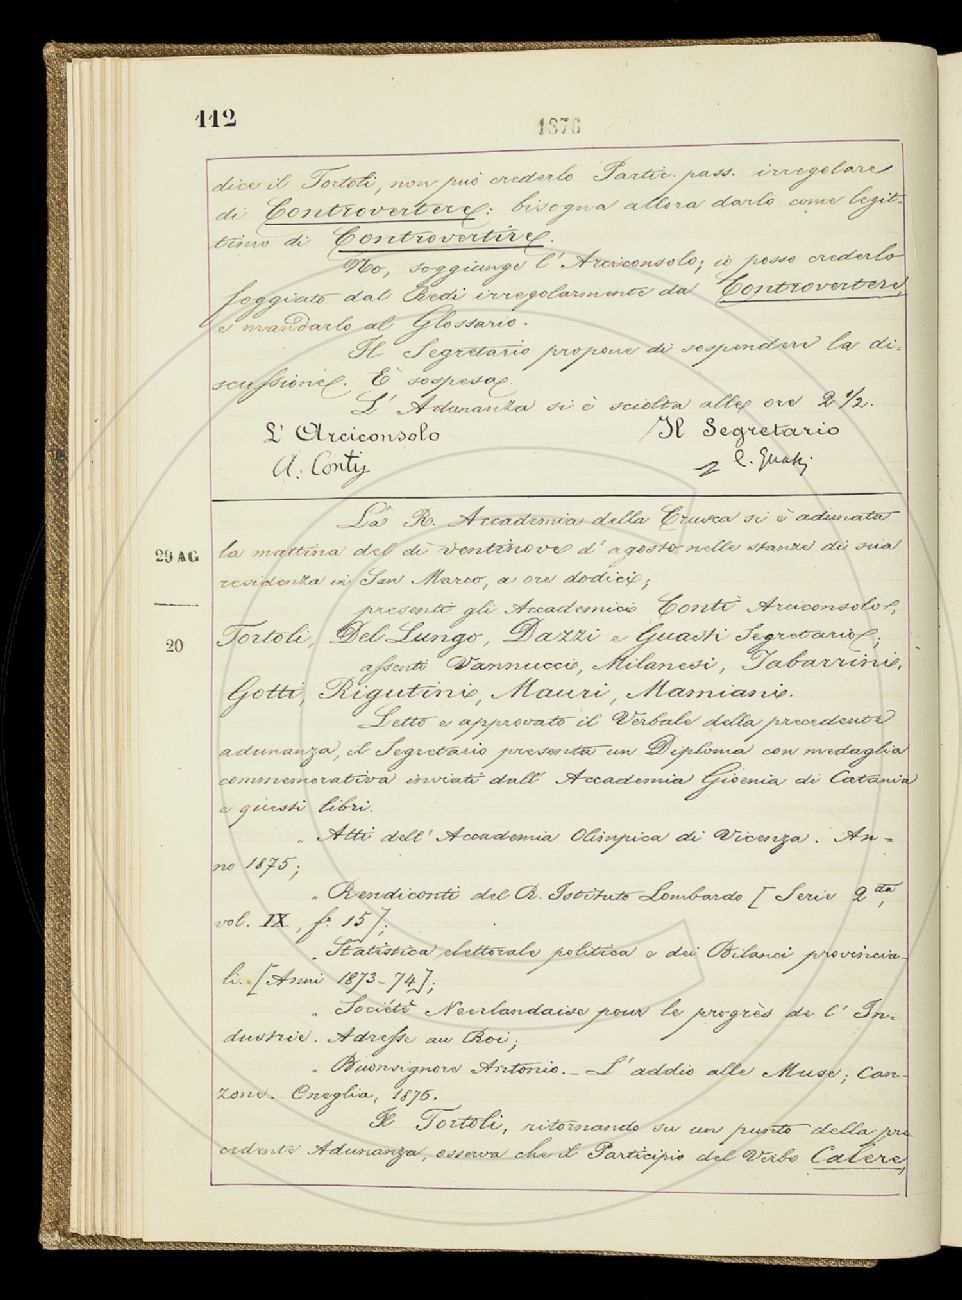 112
1876
dice il Tortoli, non può crederlo Partic. pass. irregolare
di Controvertere: bisogna allora darlo come legit=
timo di Controvertire.
No, soggiunge l'Arciconsolo; io posso crederlo
foggiato dal Redi irregolarmente da Controvertere,
e mandarlo al Glossario.
Il Segretario propone di sospendere la di=
scussione. È sospesa.
L'Adunanza si è sciolta alle ore 2 1/2.
L'Arciconsolo Il Segretario
A. Conti C. Guasti
29 AG
20
La R. Accademia della Crusca si è adunata
la mattina del dì ventinove d'agosto nelle stanze di sua
residenza in San Marco, a ore dodici;
presenti gli Accademici Conti Arciconsolo,
Tortoli, Del Lungo, Dazzi e Guasti Segretario;
assenti Vannucci, Milanesi, Tabarrini,
Gotti, Rigutini, Mauri, Mamiani.
Letto e approvato il Verbale della precedente
adunanza, il Segretario presenta un Diploma con medaglia
commemorativa inviati dall'Accademia Gioenia di Catania
e questi libri.
„ Atti dell'Accademia Olimpica di Vicenza. An=
no 1875;
„ Rendiconti del R. Istituto Lombardo [Serie 2da,
vol. IX, f. 15];
„ Statistica elettorale politica e dei Bilanci provincia=
li. [Anni 1873-74];
„ Société Neerlandaise pour le progrès de l'In=
dustrie. Adresse au Roi;
„ Buonsignore Antonio. - L'addio alle Muse; Can=
zone. Oneglia, 1876.
Il Tortoli, ritornando su un punto della pre
cedente Adunanza, osserva che il Participio del Verbo Calere,